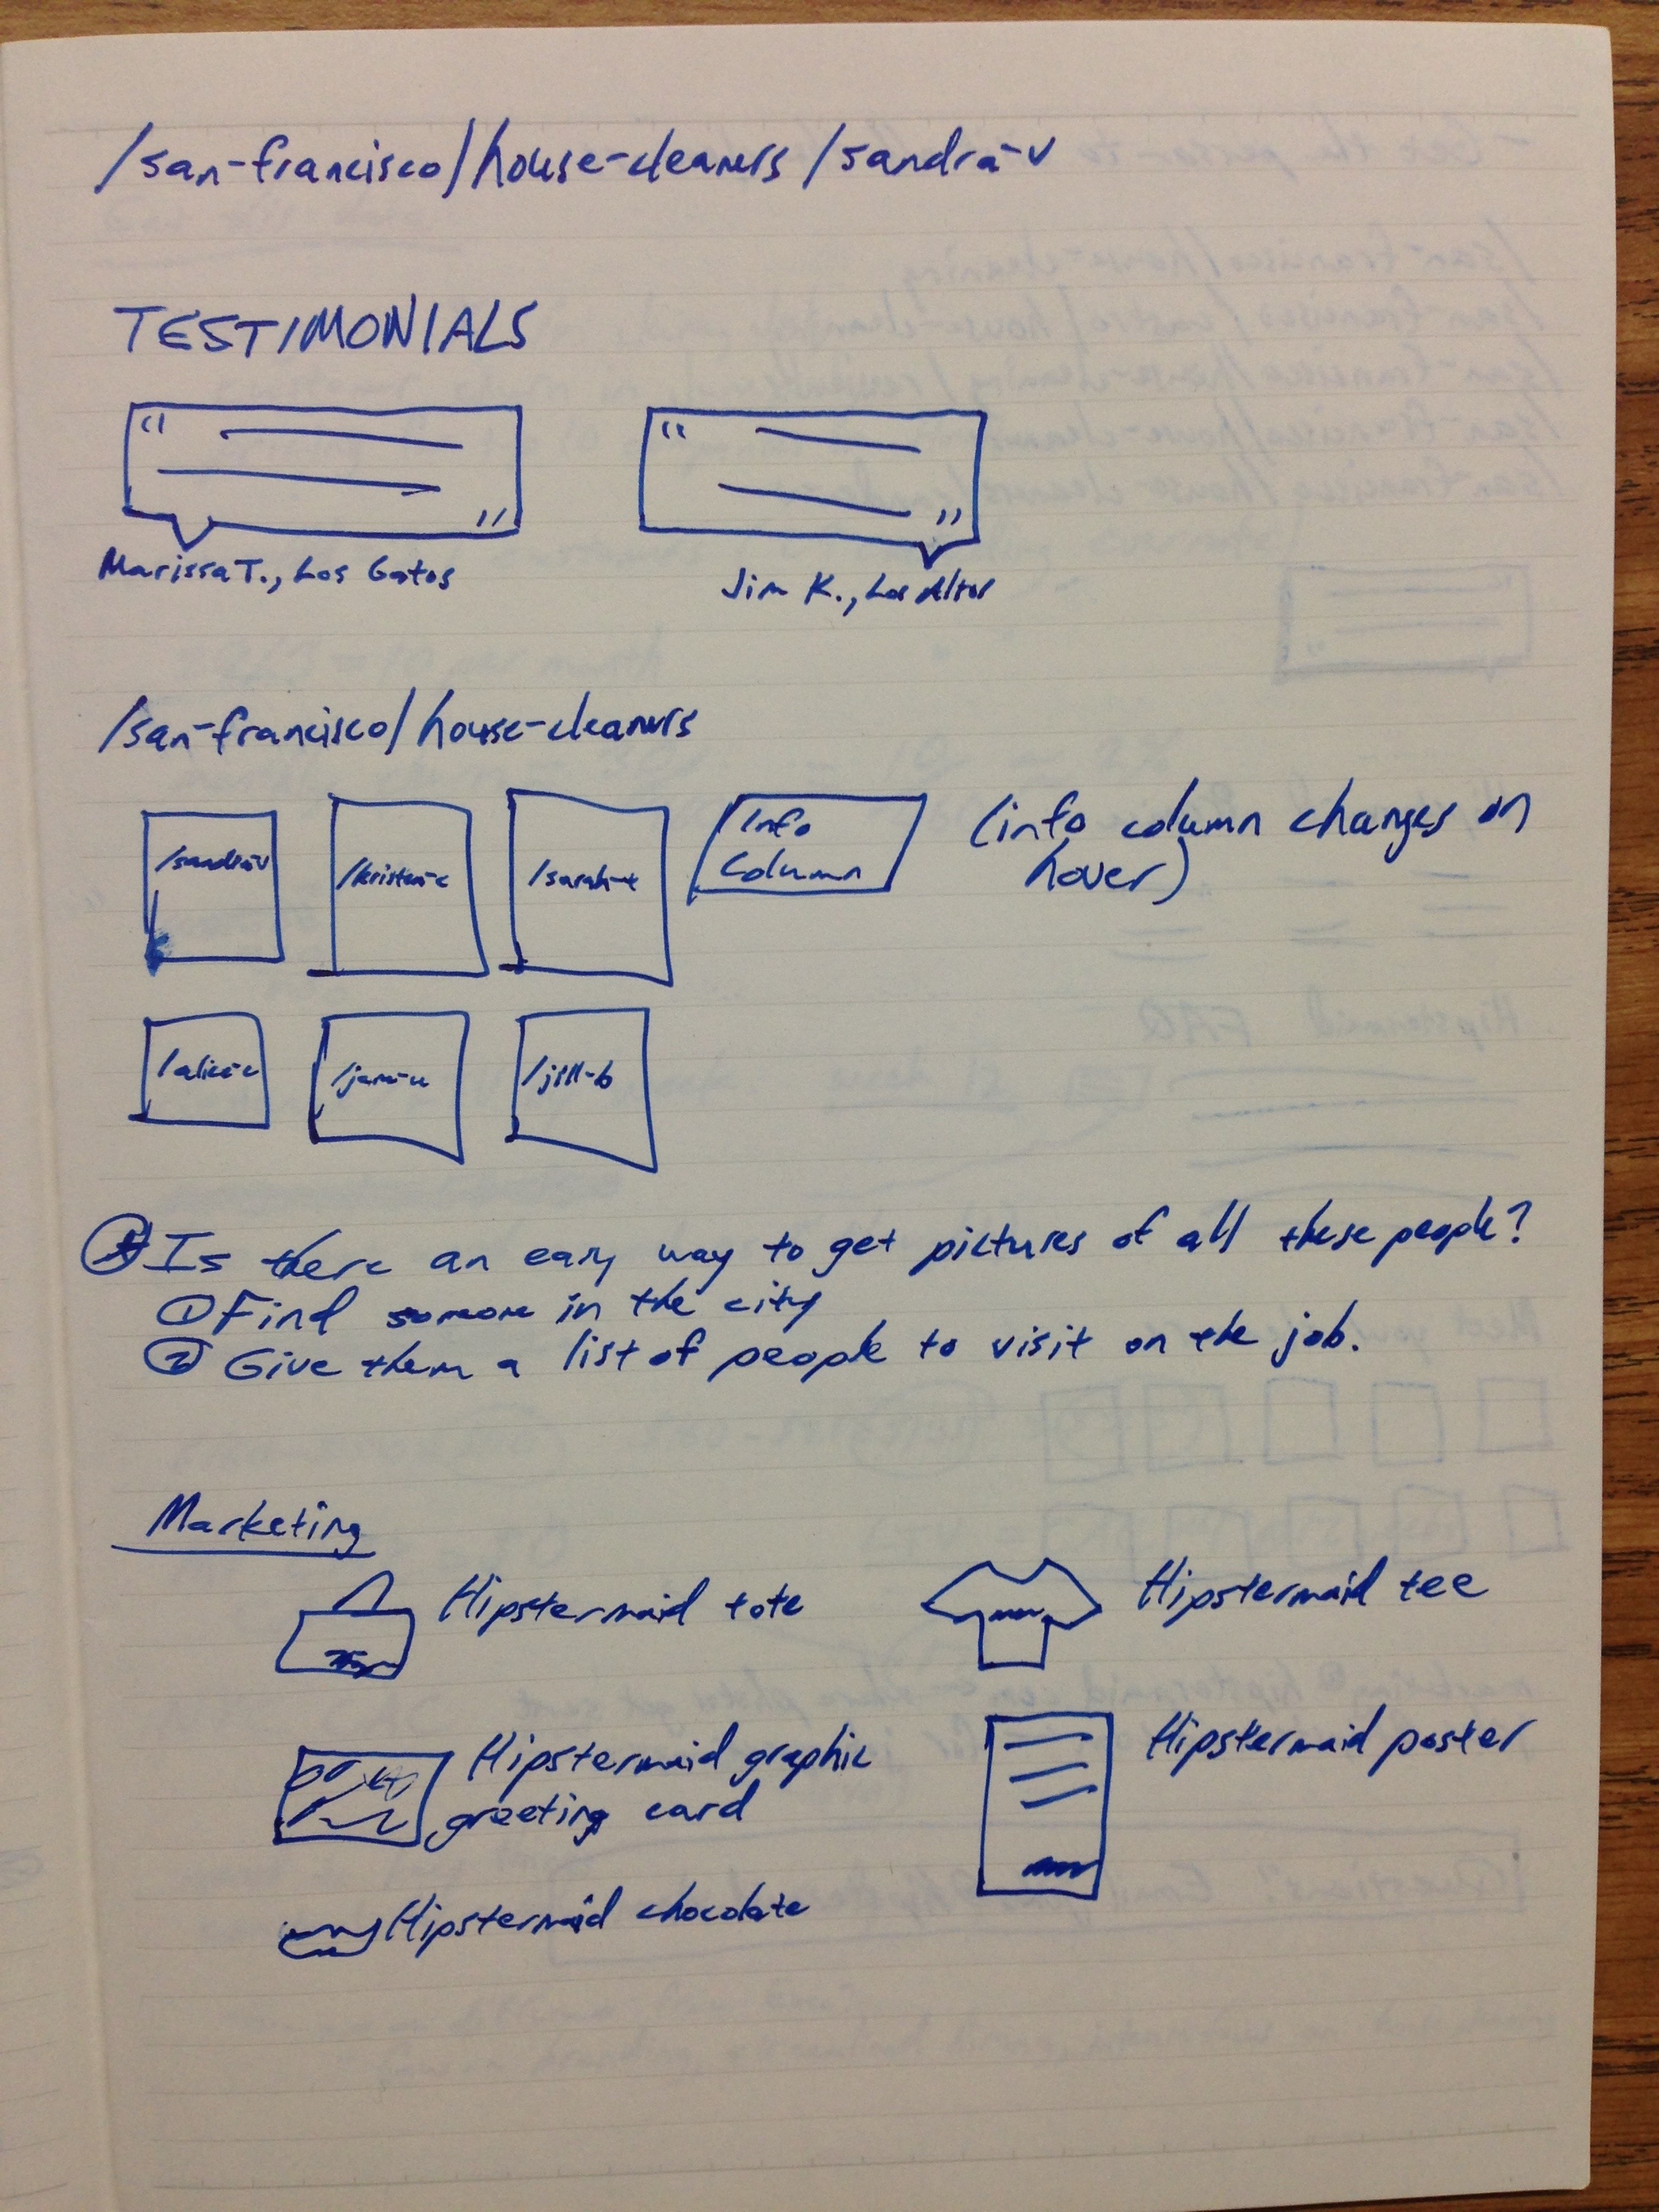 /san-francisco/house-cleaners/sandra-v
TESTIMONIALS
“ ”
“ ”
Marissa T., Los Gatos
Jim K., Los Altos
/san-francisco/house-cleaners
/sandra-v
/kristen-c
/sarah-t
Info
Column
(info column changes on
hover)
/alice-c
/jill-b
Is there an easy way to get pictures of all these people?
① Find someone in the city
② Give them a list of people to visit on the job.
Marketing
Hipstermaid tote
Hipstermaid tee
Hipstermaid graphic
greeting card
Hipstermaid poster
Hipstermaid chocolate